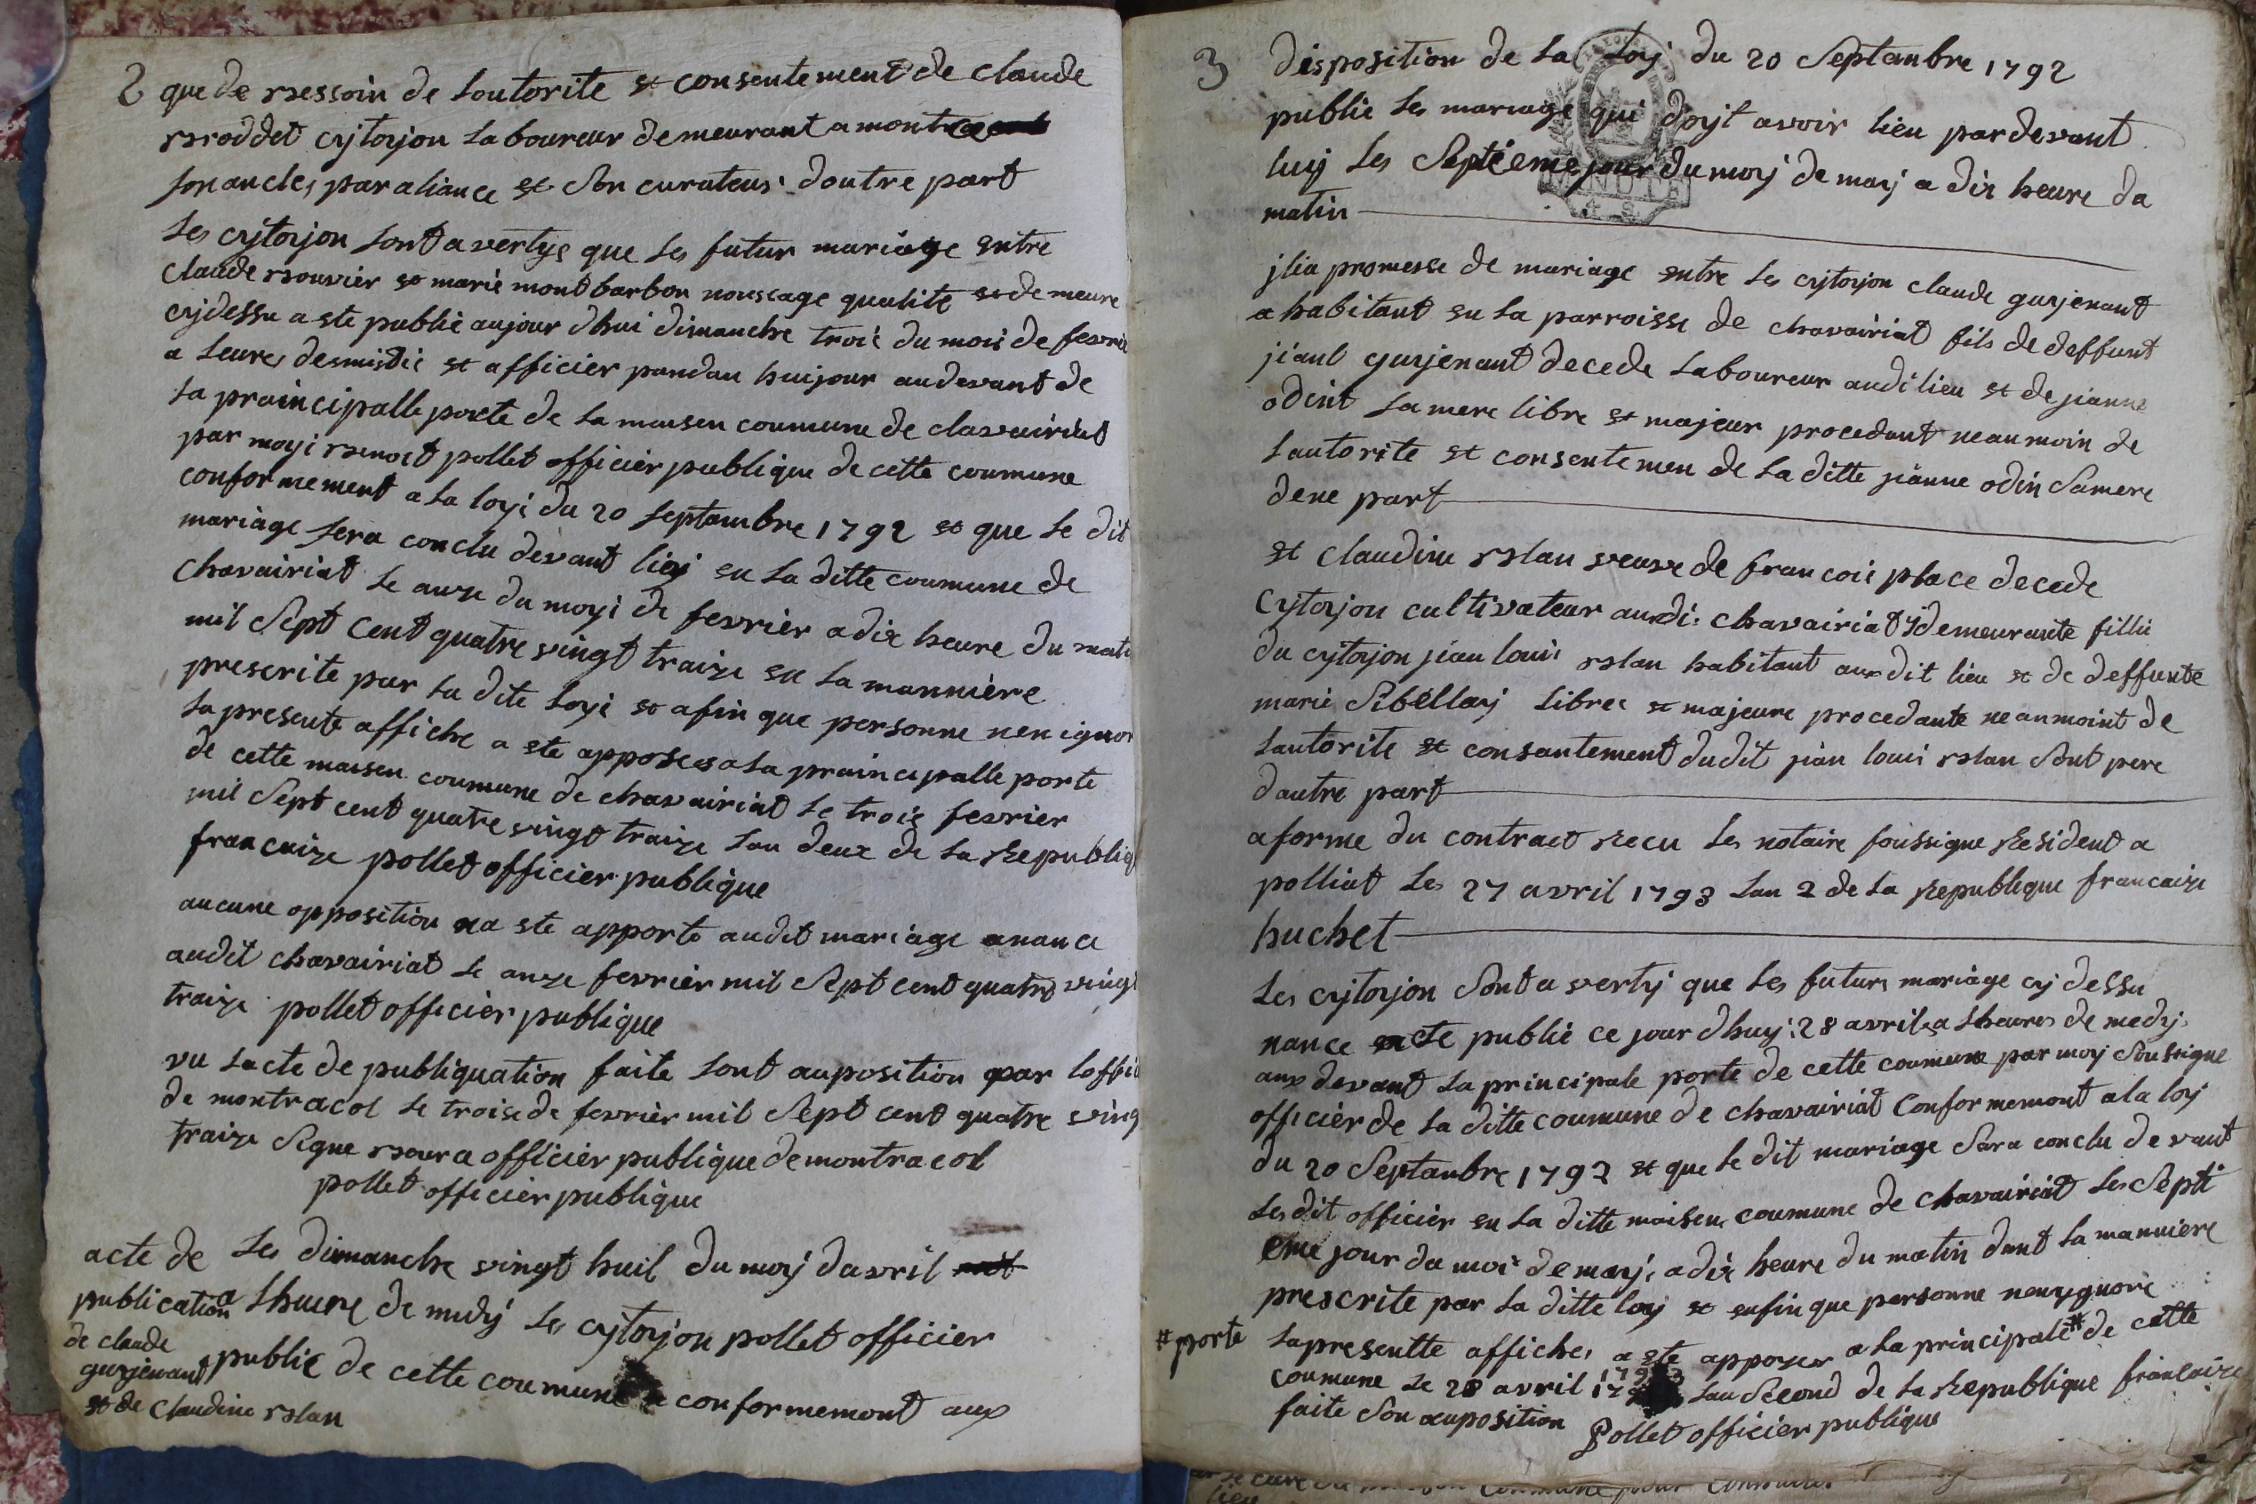 2 que de bessoin de lautorite et consentement de claude
broddet cytoyon laboureur demeurant a montra
son oncle, par aliance et son curateur dautre part
les cytoyon sont avertys que les futur mariage entre
claude bouvier et marie montbarbon nons eage qualite et demeure
cydessu a ste publie aujour dhui dimanche trois du mois de fevrie
a leures desmidie et afficier pandan huijour audevant de
la prainicipalle porte de la maison coumune de chavairiat
par moyi benoit pollet officier publique de cette coumune
conformement a la loyi du 20 septambre 1792 et que le dit
mariage sera conclu devant luy en la ditte coumune de
chavairiat le anze du moyi de fevrier a dix heure du mati
mil sept cent quatre vingt traize en la mannière
prescrite par la dite loyi et afin que personne nen ignor
la presente affiche a ste apposes a la prainicipalle porte
de cette maison coumune de chavairiat le trois fevrier
mil sept cent quatre vingt traize lan deux de la Republiq
francaize pollet officier publique
aucune opposition na ste apporte audit mariage anance
audit chavairiat le anze fevrier mil sept cent quatre vingt
traize pollet officier publique
vu lacte de publiquation faite sont auposition par loffici
de montracol le troise de fevrier mil sept cent quatre ving
traize Signe officier publique de montracol
pollet officier publique
acte de
publication
de claude
guyjenant
et de Claudine rolan
les dimanche vingt huil du moy davril
a lheure de midy les cytoyon pollet officier
public de cette coumune a conformemont aux
3 disposition de la Loy du 20 Septambre 1792
publie les mariage qui doyt avoir lieu pardevant
luy les septieme jour du moy de may a dix heure da
matin
MINUTE
jlia promesse de mariage entre les cytoyon claude guyjenant
a habitant en la parroisse de chavairiat fils de deffunt
jianl guyjenant decede laboureur audi lieu et de jianne
odint sa mere libre et majeur procedant neanmoin de
lautorite et consentemen de la ditte jianne odin sa mere
dene part
et claudine rolan veuve de francois place decede
Cytoyon cultivateur audi chavairiat y demeurante fillie
du cytoyon jian louis rolan habitant au dit lieu et de deffunte
marie Sibellay libre et majeure procedante neanmoint de
lautorite et consantement dudit jian loui rolan sont pere
dautre part
a forme du contract recu les notaire soussigne Resident a
polliat les 27 avril 1793 lan 2 de la republique francaize
buchet
les cytoyon sont averty que les futurs mariage cy dessu
nance publie ce jour dhuy 28 avril a lheures de medy
aux devant la principale porte de cette coumune par moy soussigne
officier de la ditte coumune de chavairiat conformemont a la loy
du 20 Septanbre 1792 et que le dit mariage sara conclu devant
les dit officier en la ditte maison coumune de chavairiat les septi
eme jour du moi de may a dix heure du matin dant la manniere
prescrite par la ditte loy et enfin que personne nenygnore
la presentte affiche, a ete apposer a la principale # de cette
# porte
coumune le 28 avril 1793 lan second de la Republique francaize
faite son auposition Pollet officier publique